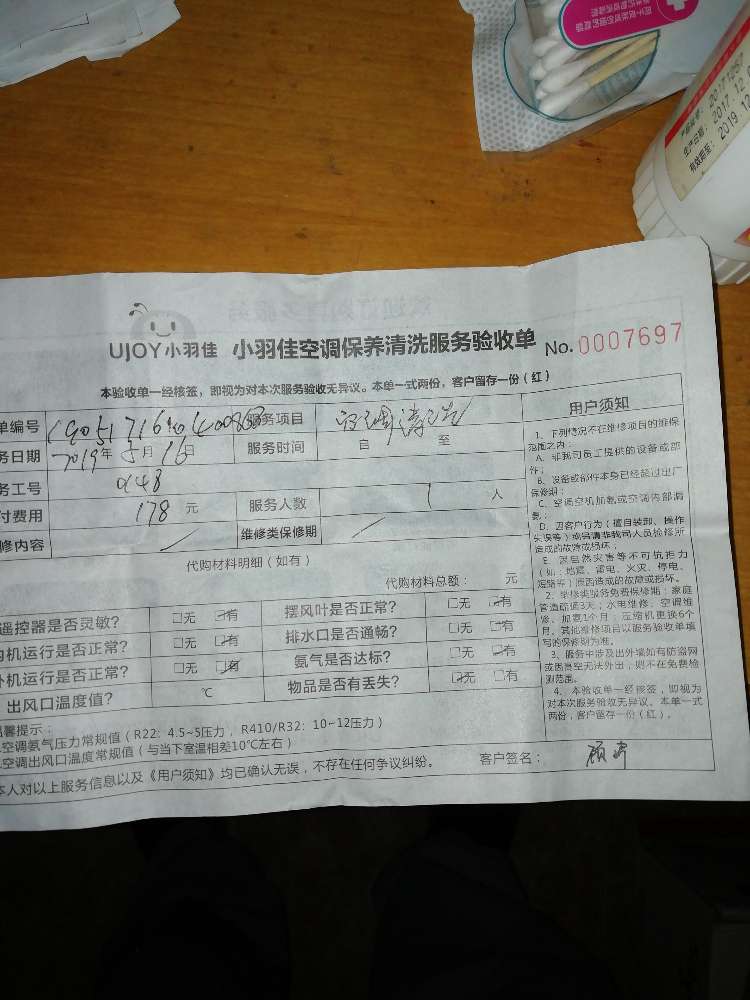 产品批号：2017125?
生产日期：2017.12.0
有效期至：2019.12
UJOY小羽佳 小羽佳空调保养清洗服务验收单 No.0007697
本验收单一经核签，即视为对本次服务验收无异议。本单一式两份，客户留存一份（红）
单编号 服务项目 空调清洗
务日期 2019年5月16日 服务时间 自 至
务工号 048
付费用 178元 服务人数 1人
修内容 / 维修类保修期 /
代购材料明细（如有）
代购材料总额： 元
遥控器是否灵敏？ □无 ☑有 摆风叶是否正常？ □无 ☑有
内机运行是否正常？ □无 ☑有 排水口是否通畅？ □无 ☑有
外机运行是否正常？ □无 ☑有 氨气是否达标？ □无 ☑有
出风口温度值？ ℃ 物品是否有丢失？ ☑无 □有
温馨提示：
空调氨气压力常规值（R22：4.5~5压力，R410/R32：10~12压力）
空调出风口温度常规值（与当下室温相差10℃左右）
本人对以上服务信息以及《用户须知》均已确认无误，不存在任何争议纠纷。 客户签名：
用户须知
1、下列情况不在维修项目的维保
范围之内：
A、非我司员工提供的设备或部
件；
B、设备或部件本身已经超过出厂
保修期；
C、空调空机加氨或空调内部漏
氨；
D、因客户行为（擅自装卸、操作
失误等）或另请非我司人员检修所
造成的故障或损坏；
E、因自然灾害等不可抗拒力
（如：地震、雷电、火灾、停电、
短路等）原因造成的故障或损坏。
2、单楼类服务免费保修期：家庭
管道疏通3天；水电维修、空调维
修、加氨1个月；压缩机更换6个
月，其他维修项目以服务验收单填
写的保修期为准。
3、服务中涉及出外墙如有防盗网
或因高空无法外出，则不在免费检
测范围。
4、本验收单一经核签，即视为
对本次服务验收无异议。本单一式
两份，客户留存一份（红）。